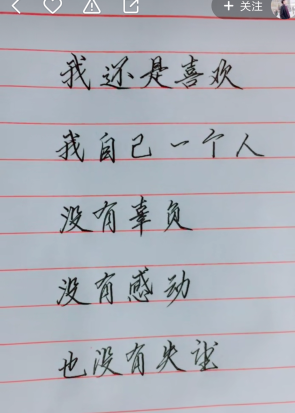 + 关注
我还是喜欢
我自己一个人
没有辜负
没有感动
也没有失望